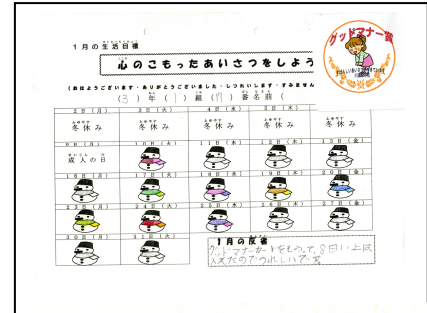 1月の生活目標
グッドマナー賞
心のこもったあいさつをしよう
(おはようございます・ありがとうございました・しつれいします・すみません
(3)年(1)組( )番名前(
2日(月) 3日(火) 4日(水) 5日(木)
冬休み 冬休み 冬休み 冬休み 冬休み
9日(月) 10日(火) 11日(水) 12日(木) 13日(金)
成人の日
16日(月) 17日(火) 18日(水) 19日(木) 20日(金)
23日(月) 24日(火) 25日(水) 26日(木) 27日(金)
30日(月) 31日(火)
1月の反省
グッドマナーカードをもらって、8日い上
たのでうれしいです